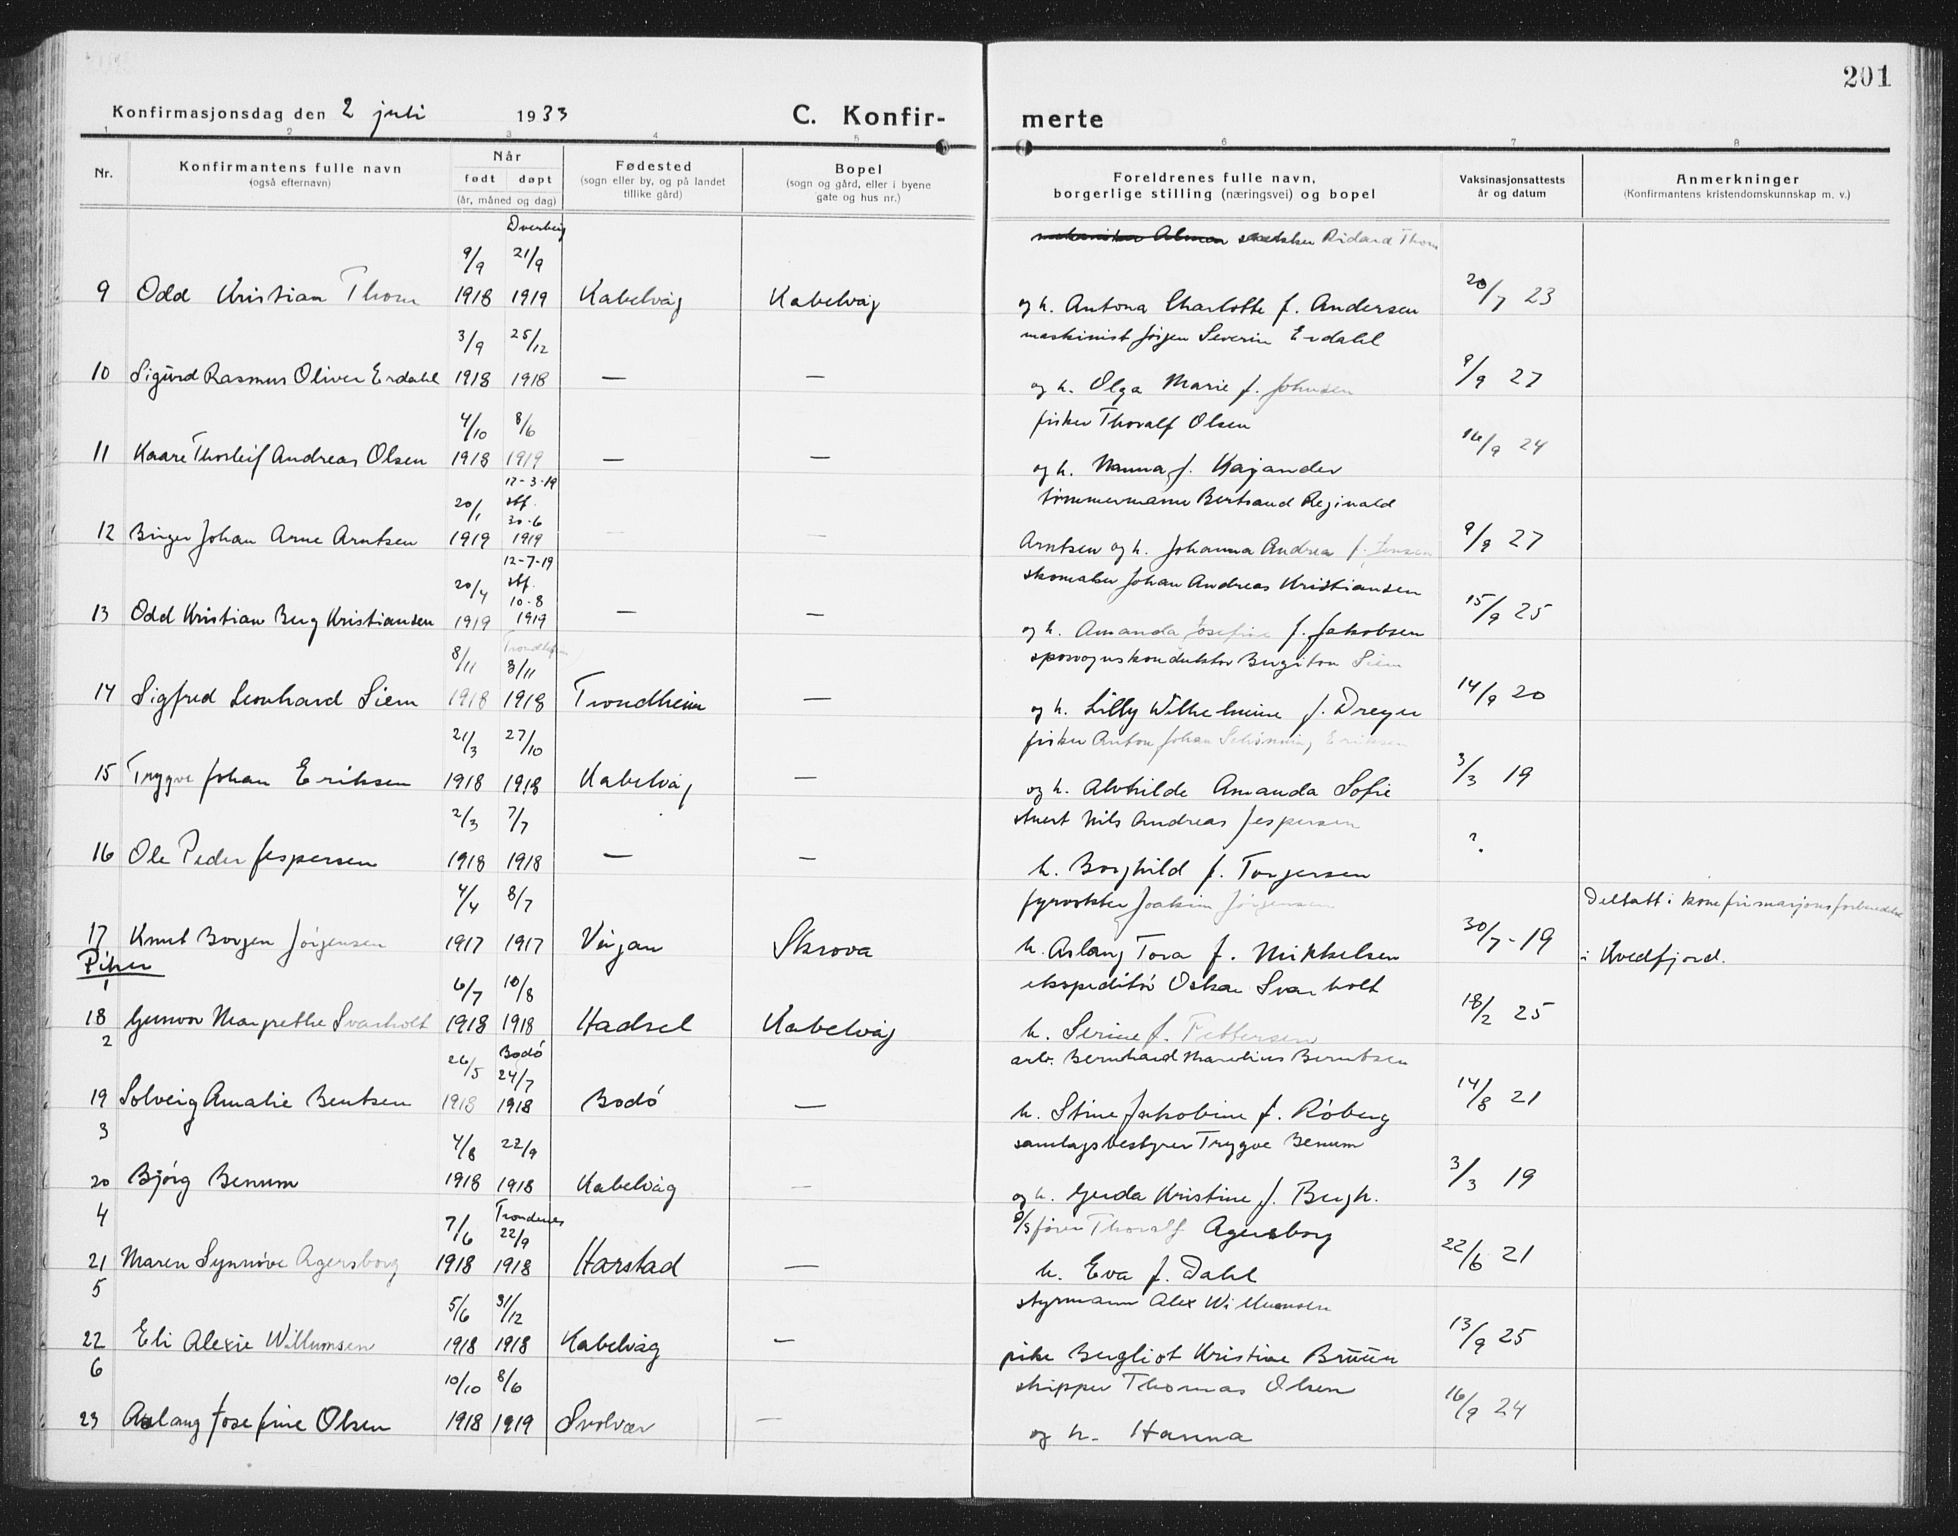 201
Konfirmasjonsdag den 2 juli 1933 C. Konfir- merte
1 2 3 4 5 6 7 8
Nr. Konfirmantens fulle navn (også efternavn) Når født døpt (år, måned og dag) Fødested (sogn eller by, og på landet tillike gård) Bopel (sogn og gård, eller i byene gate og hus nr.) Foreldrenes fulle navn, borgerlige stilling (næringsvei) og bopel Vaksinasjonsattests år og datum Anmerkninger (Konfirmantens kristendomskunnskap m. v.)
Dverberg
9/9 21/9 Rikard Thom
9 Odd Kristian Thom 1918 1919 Kabelvåg Kabelvåg og h. Antona Charlotte f. Andersen 20/7 23
3/9 25/12 maskinist Jørgen Severin Erdahl
10 Sigurd Rasmus Oliver Erdahl 1918 1918 — — og h. Olga Marie f. Johnsen 9/9 27
4/10 8/6 fisker Thoralf Olsen
11 Kaare Thorleif Andreas Olsen 1918 1919 — — og h. Nanna f. Kajander 16/9 24
12-3-19
20/1 stf. 30-6 tømmermann Bertrand Reginald
12 Birger Johan Arne Arntsen 1919 1919 — — Arntsen og h. Johanna Andrea f. Jensen 9/9 27
12-7-19
20/4 stf. 10-8 skomaker Johan Andreas Kristiansen
13 Odd Kristian Berg Kristiansen 1919 1919 — — og h. Amanda Josefine f. Jakobsen 15/9 25
Trondheim
8/11 3/11 sporvognskonduktør Birgiton Siem
14 Sigfred Leonhard Siem 1918 1918 Trondheim — og h. Lilly Wilhelmine f. Dreyer 14/9 20
21/3 27/10 fisker Anton Johan Schønning Eriksen
15 Trygve Johan Eriksen 1918 1918 Kabelvåg — og h. Alvhilde Amanda Sofie 3/3 19
2/3 7/7 stuert Nils Andreas Jespersen
16 Ole Peder Jespersen 1918 1918 — — h. Borghild f. Torgersen ?
4/4 8/7 fyrvokter Joakim Jørgensen Deltatt i konfirmasjonsforberedelse
17 Knut Borgen Jørgensen 1917 1917 Vågan Skrova h. Aslaug Tora f. Mikkelsen 30/7-19 i Kvedfjord.
Piker
1 6/7 10/8 ekspeditør Oskar Svarholt
18 Gunvor Margrethe Svarholt 1918 1918 Hadsel Kabelvåg h. Serine f. Pettersen 18/2 25
2 26/5 Bodø 24/7 arb. Bernhard Marelius Berntsen
19 Solveig Amalie Bentsen 1918 1918 Bodø — h. Stine Jakobine f. Røberg 14/8 21
3 4/8 22/9 samlagsbestyrer Trygve Benum
20 Bjørg Benum 1918 1918 Kabelvåg — og h. Gerda Kristine f. Bergh. 3/3 19
4 7/6 Trondenes 22/9 D/S fører Thoralf Agersborg
21 Maren Synnøve Agersborg 1918 1918 Harstad — h. Eva f. Dahl 22/6 21
5 5/6 31/12 styrmann Alex Willumsen
22 Eli Alexie Willumsen 1918 1918 Kabelvåg — pike Bergliot Kristine Bruun 13/9 25
6 10/10 8/6 skipper Thomas Olsen
23 Aslaug Josefine Olsen 1918 1919 Svolvær — og h. Hanna 16/9 24